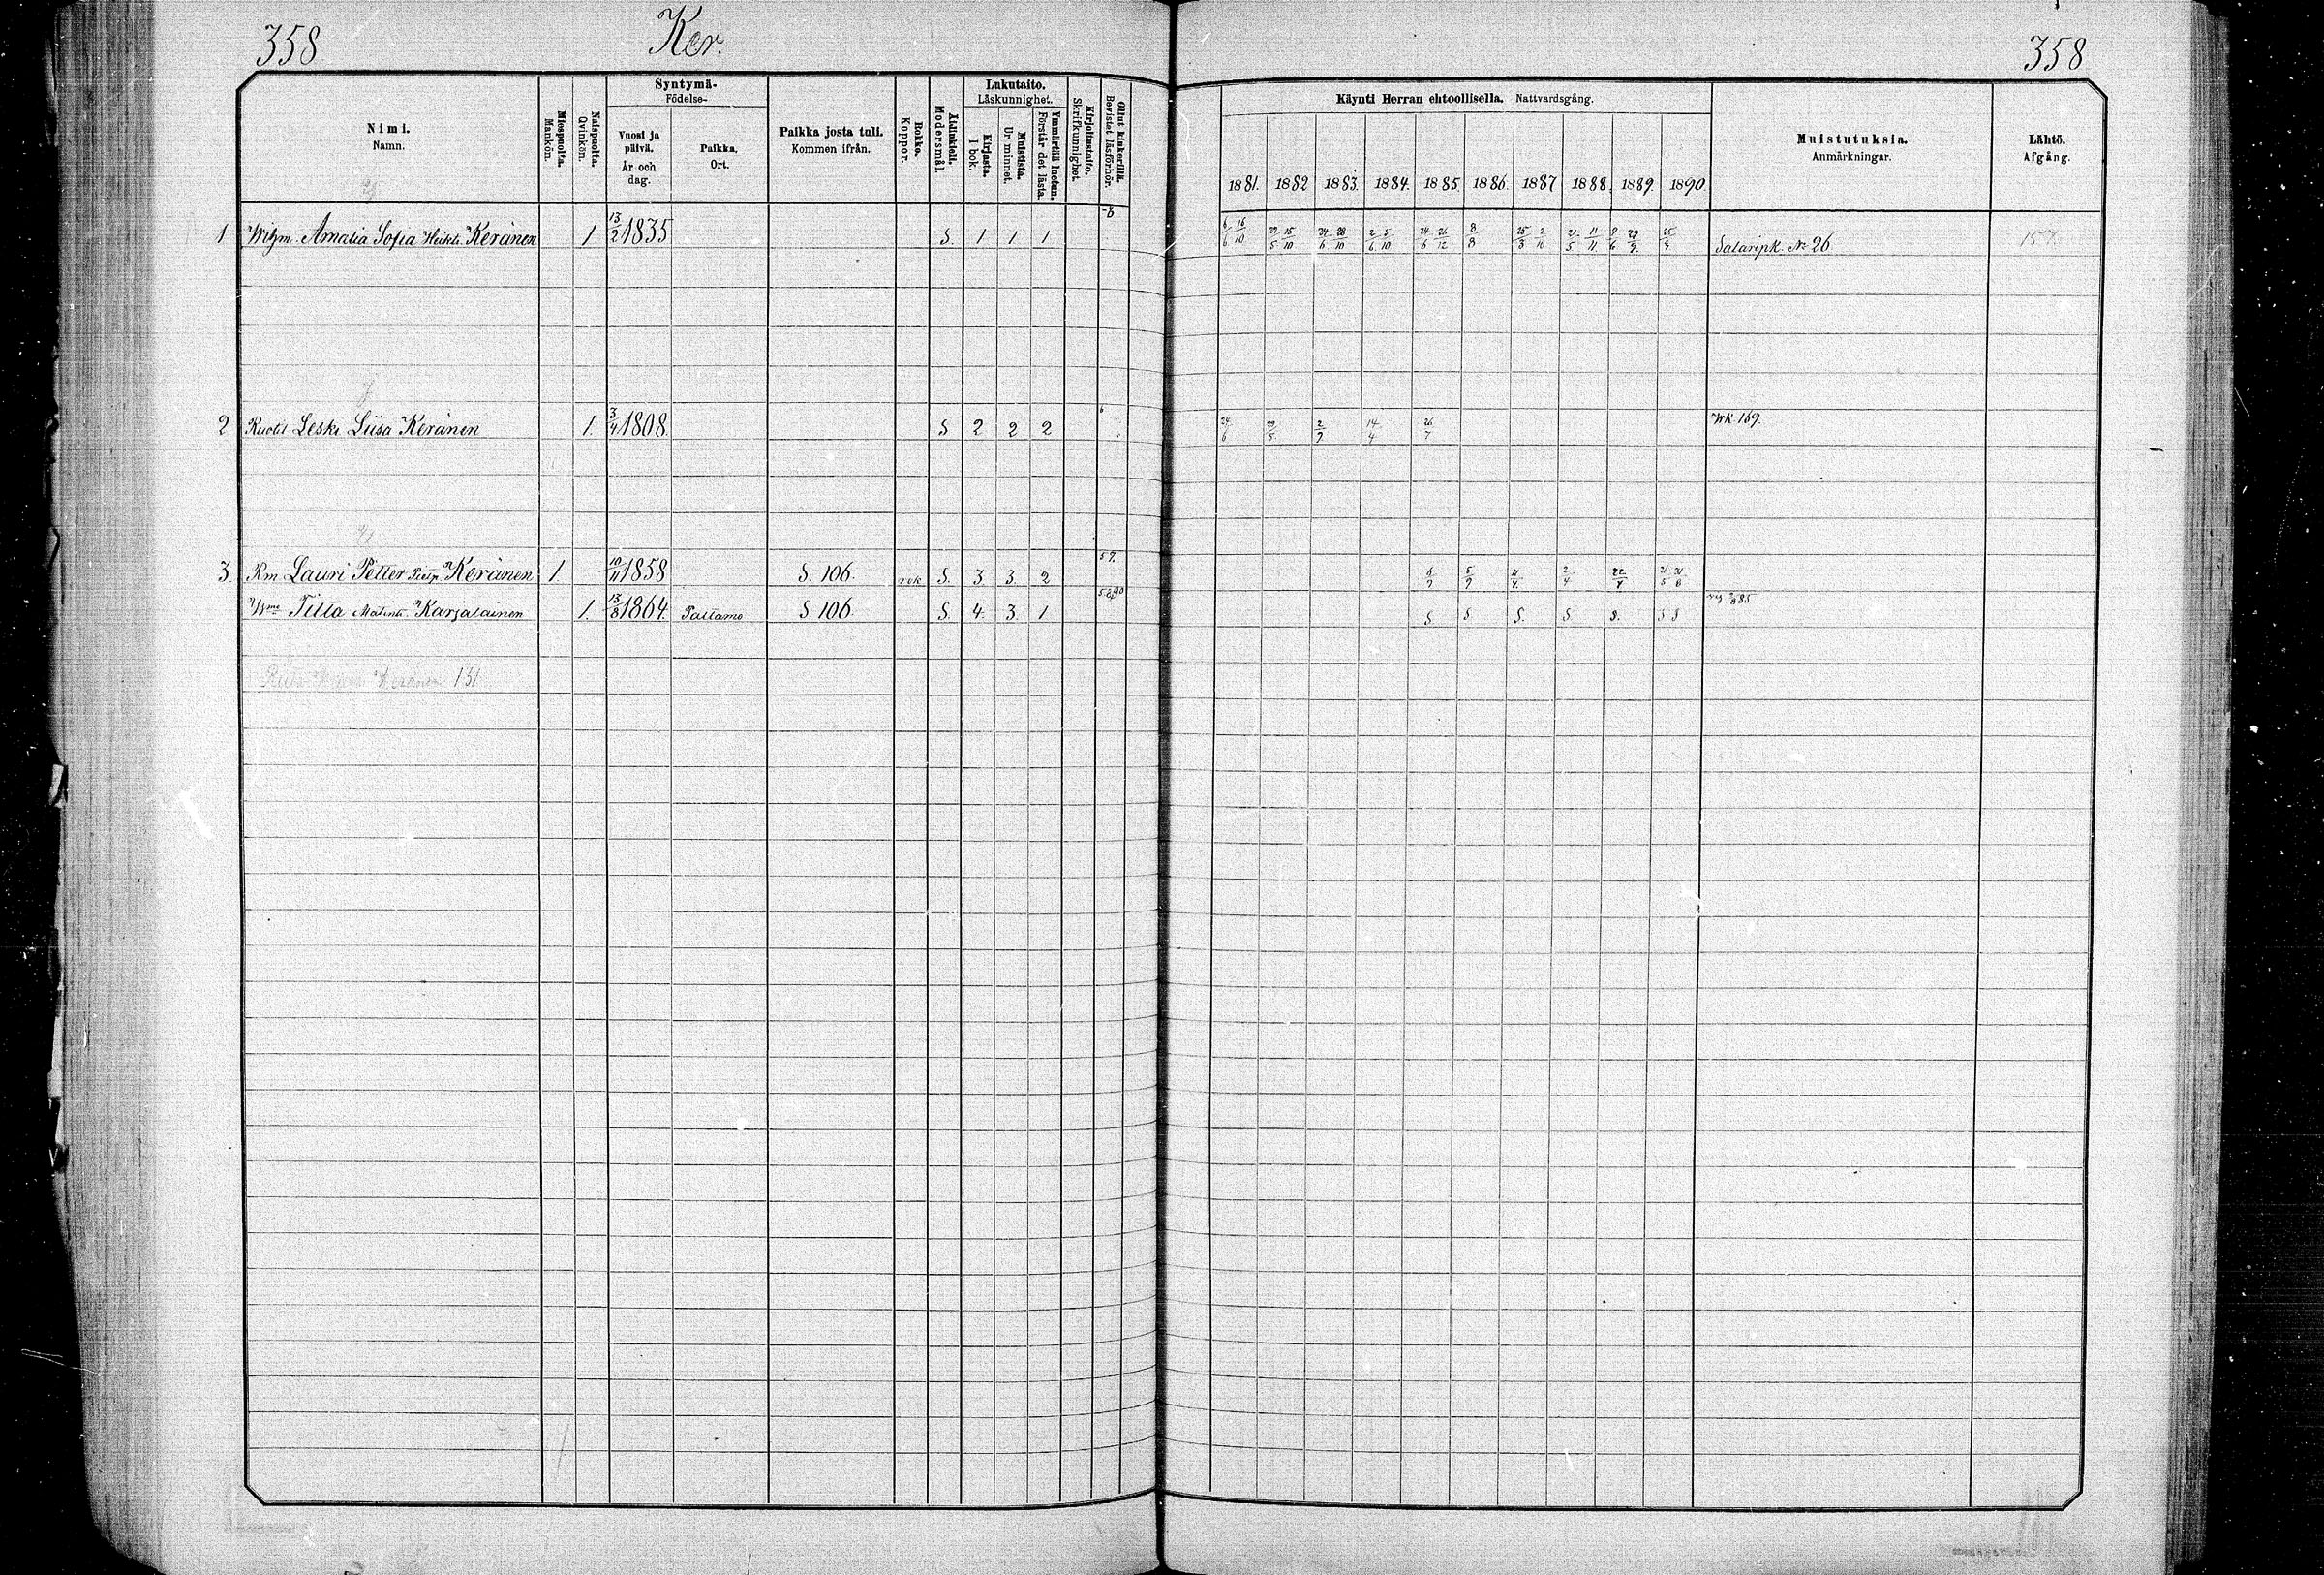 358 Ker. 358
Nimi. Namn. Miespuolta. Mankön. Naispuolta. Qvinkön. Syntymä- Födelse- Vuosi ja päivä. År och dag. Paikka. Ort. Paikka josta tuli. Kommen ifrån. Rokko. Koppor. Äidinkieli. Modersmål. Lukutaito. Läskunnighet. Kirjasta. I bok. Muistista. Ur minnet. Ymmärtää luetun. Förstår det lästa. Kirjoitustaito. Skrifkunnighet. Ollut kinkerillä. Bevistat läsförhör.
Käynti Herran ehtoollisella. Nattvardsgång. Muistutuksia. Anmärkningar. Lähtö. Afgång.
1881. 1882 1883. 1884. 1885 1886. 1887 1888. 1889. 1890.
1 Amalia Sofia Heikint. Keränen 1 13/2 1835 S. 1 1 1 6/6 16/10 29/5 15/10 24/6 28/10 2/6 5/10 24/6 26/12 8/8 25/3 2/10 21/5 11/11 9/6 29/9 25/4 No 26 157.
2 Leski Liisa Keränen 1. 3/4 1808. S 2 2 2 6 24/6 29/5 2/9 14/4 26/7 Wk. 169.
3. Rm Lauri Petter Keränen 1. 10/11 1858 S. 106. rok S. 3. 3. 2 57. 6/9 5/9 11/4 2/4 22/4 26/5 21/8
Titta Matint. Karjalainen 1. 13/8 1864. Paltamo S 106. S. 4. 3. 1 S S S. S S. S S
Keränen 131